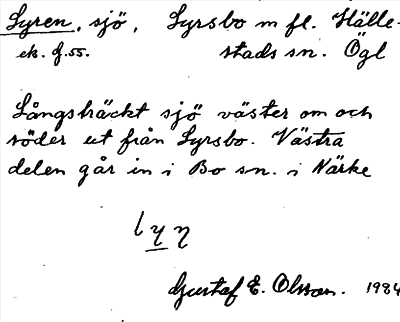 Lyren, sjö, Lyrsbo m fl. Hälle-
ek. f.55. stads sn. Ögl
Långsträckt sjö väster om och
söder ut från Lyrsbo. Västra
delen går in i Bo sn. i Närke
Gustaf E. Olsson. 1984